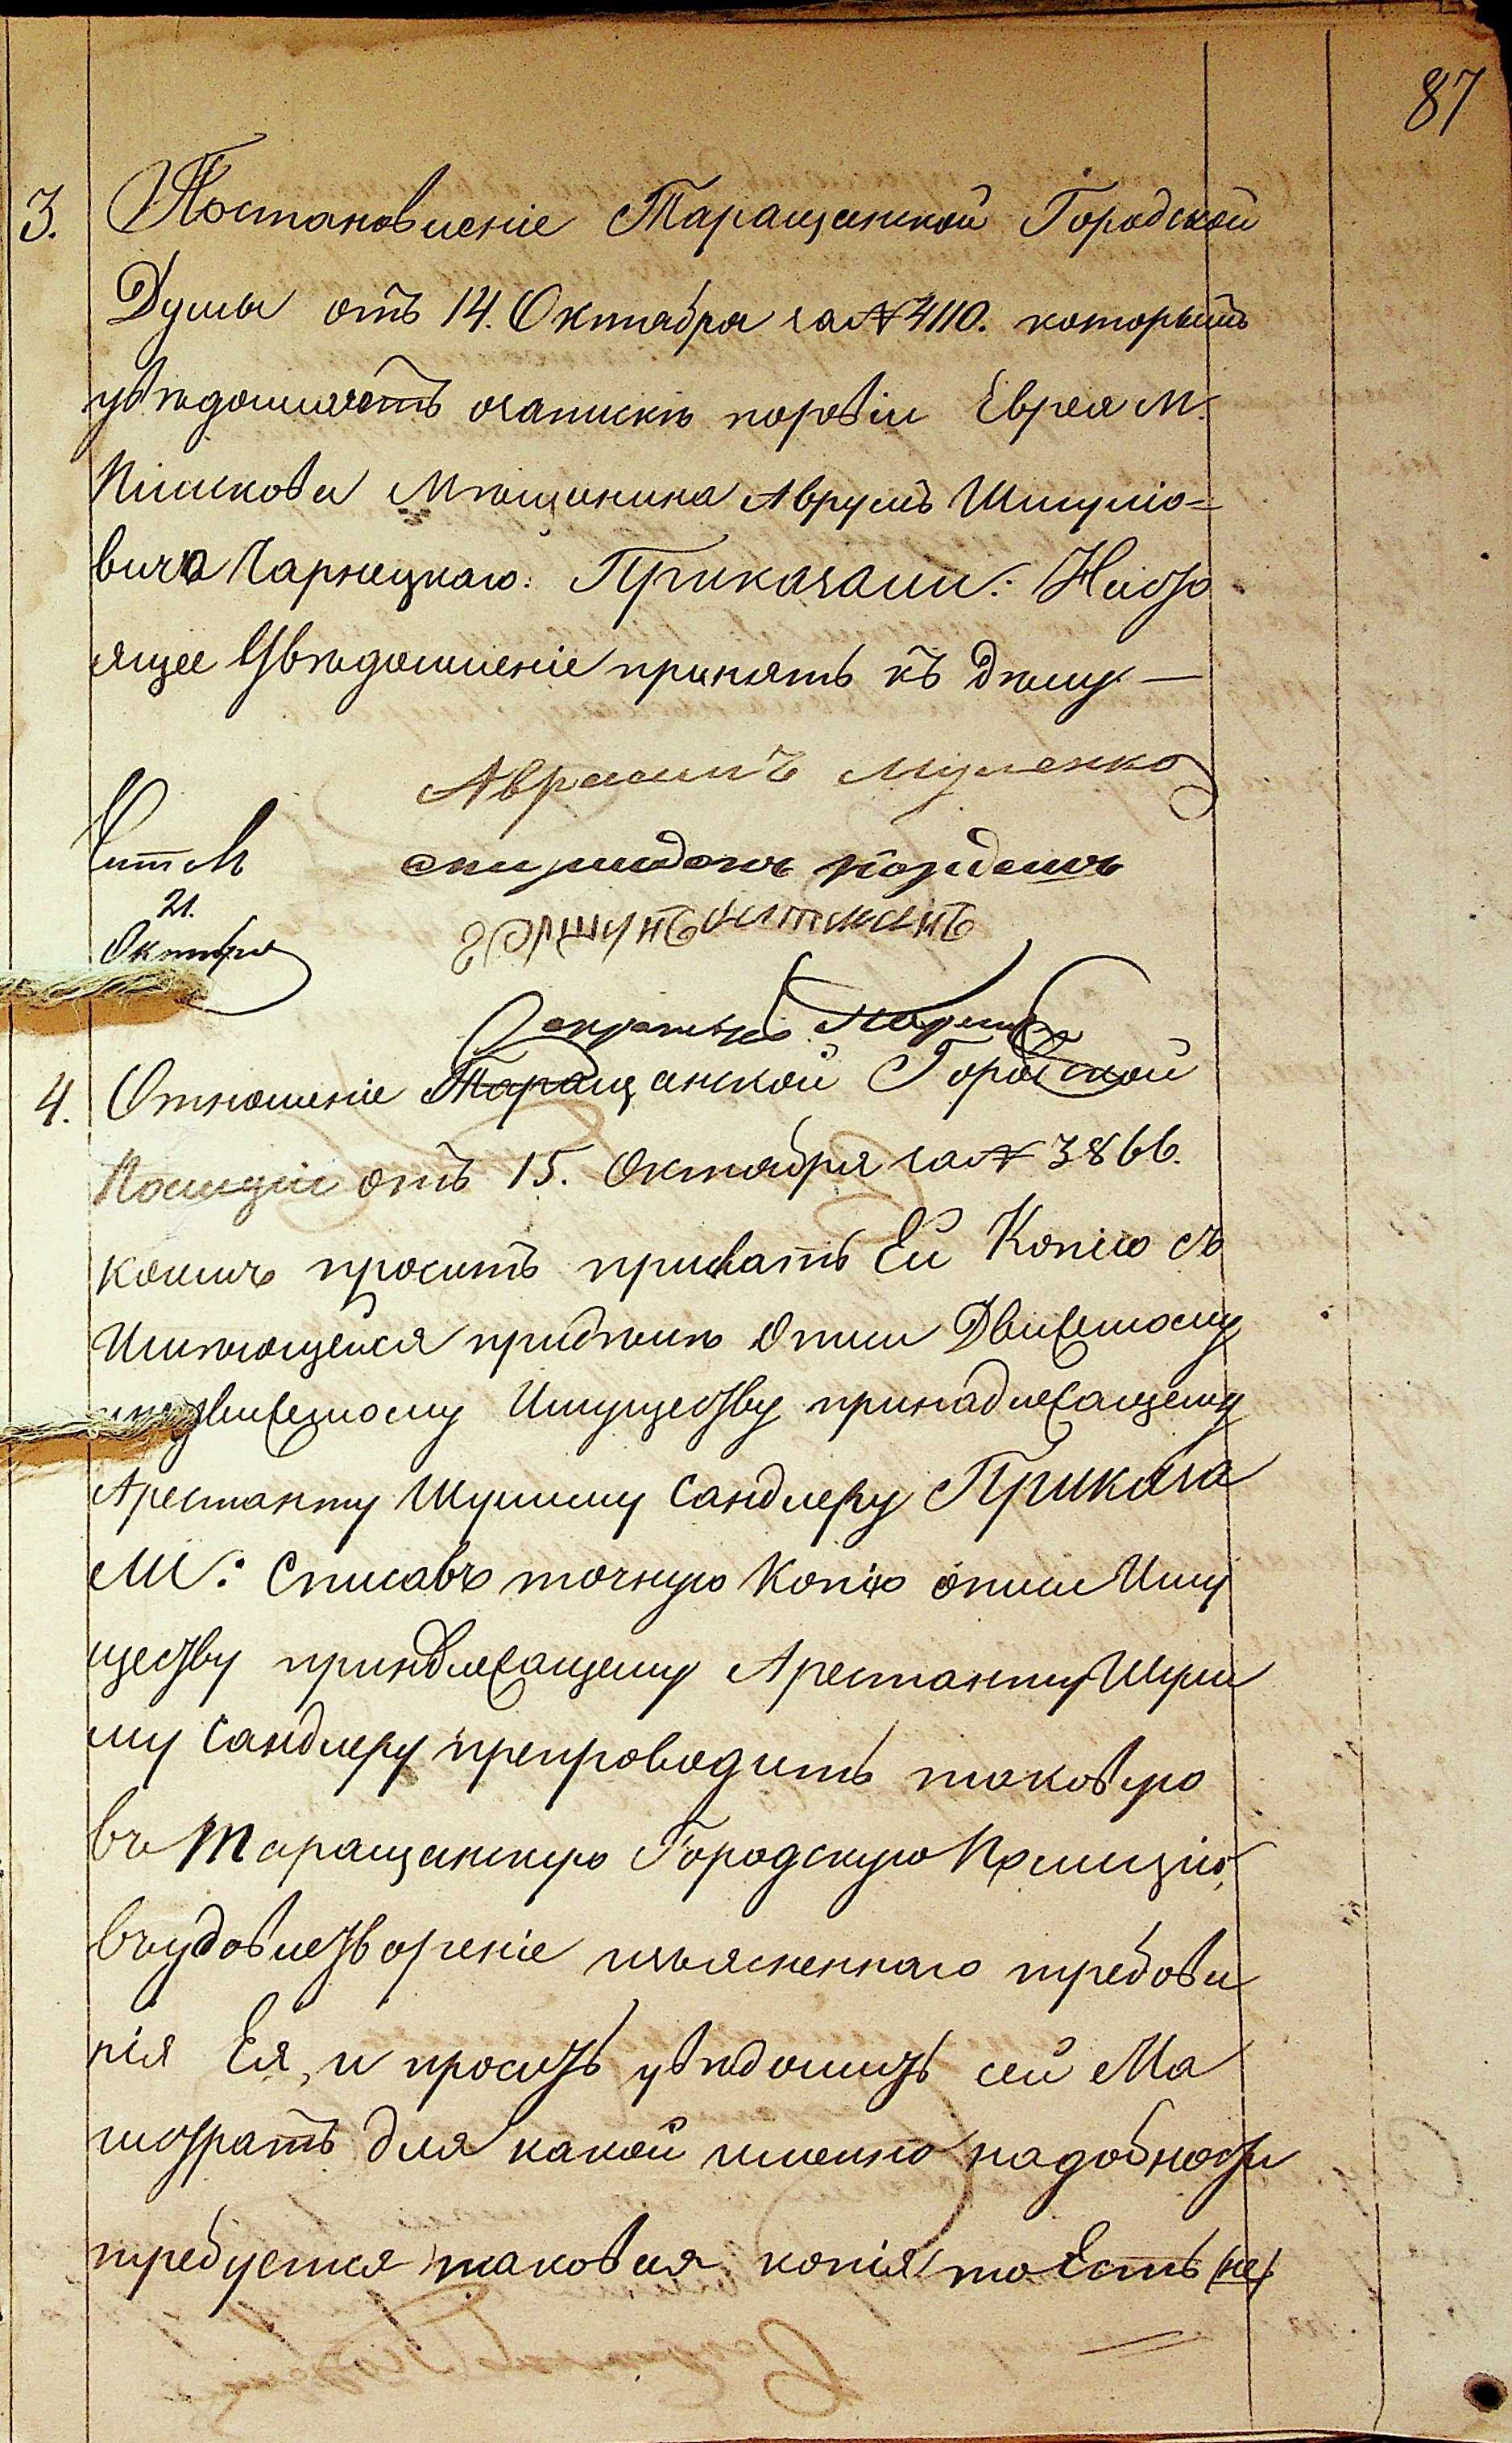 87
3. Постановленіе Таращанской Городской
Думы отъ 14. Октября за № 4110. которымъ
увѣдомляетъ озапискѣ поревіи Еврея м.
Пішкова Мѣщанина Аврумъ Шмуліо=
вича Чарнецкаго: Приказали: Насто
ящее Увѣдомленіе принять къ дѣлу —
Аврамъ
Чит М
21.
Октября
Секретарь
4. Отношеніе Таращанской Городской
Полиціи отъ 15. Октября за № 3866.
коимъ проситъ прислать Ей Копію съ
Имѣющейся придѣлѣ Описи Движемому
движемому Имуществу принадлежащему
Арестанту Шулиму Сандлеру Приказа
ли: Списавъ точную Копію описи Иму
ществу принадлежащему Арестанту Шули
му Сандлеру препроводить таковую
въ Таращанскую Городскую Полицію,
въудовлетвореніе изъясненнаго требова
нія Ея, и просить увѣдомить сей Ма
гистратъ для какой именно надобности
требуется таковая копія, то есть (не)